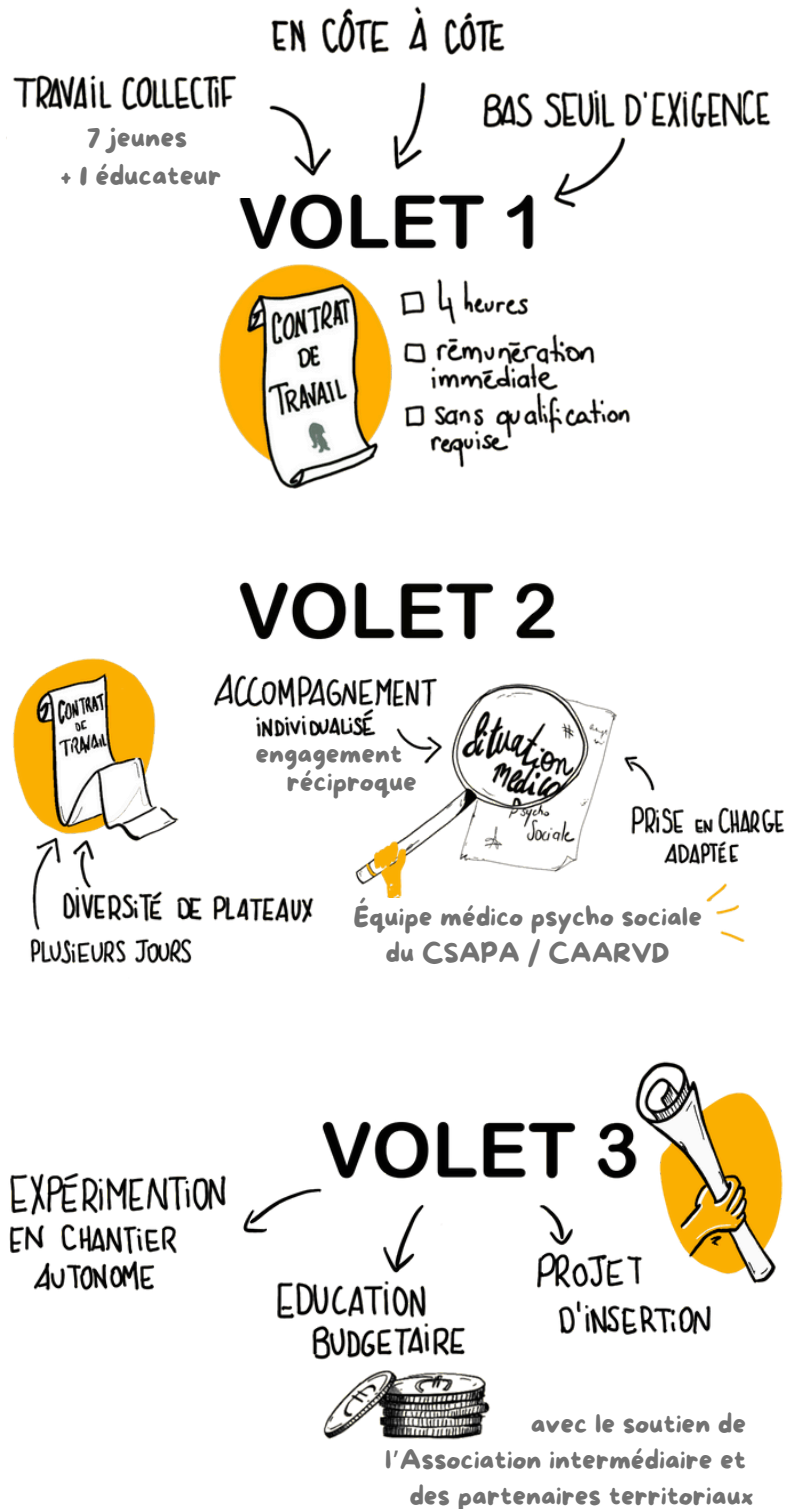 EN CÔTE À CÔTE
TRAVAIL COLLECTIF
7 jeunes
+ 1 éducateur
BAS SEUIL D'EXIGENCE
VOLET 1
CONTRAT
DE
TRAVAIL
4 heures
rémunération
immédiate
sans qualification
requise
VOLET 2
CONTRAT
DE
TRAVAIL
DIVERSITÉ DE PLATEAUX
PLUSIEURS JOURS
ACCOMPAGNEMENT
INDIVIDUALISÉ
engagement
réciproque
Situation
Médico
Psycho
Sociale
PRISE EN CHARGE
ADAPTÉE
Équipe médico psycho sociale
du CSAPA / CAARVD
VOLET 3
EXPÉRIMENTION
EN CHANTIER
AUTONOME
EDUCATION
BUDGETAIRE
PROJET
D'INSERTION
avec le soutien de
l'Association intermédiaire et
des partenaires territoriaux